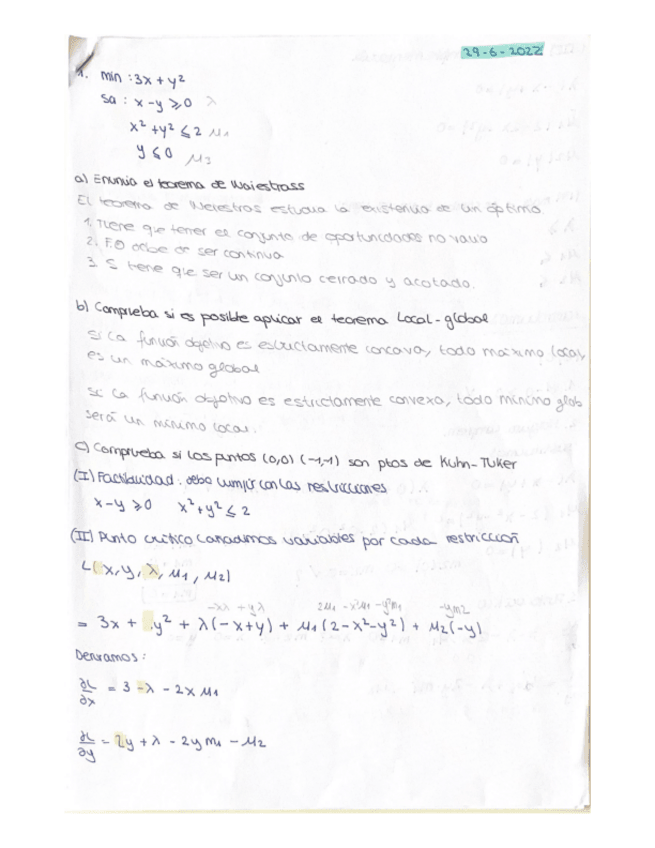 29-6-2022
1. min : 3x + y²
sa : x - y ⩾ 0 λ
x² + y² ⩽ 2 μ1
y ⩽ 0 μ3
a) Enuncia el teorema de Waiestrass
El teorema de Weiestras estudia la existencia de un óptimo
1. Tiene que tener el conjunto de oportunidades no vacio
2. F.O debe de ser continua
3. S tiene que ser un conjunto cerrado y acotado.
b) Comprueba si es posible aplicar el teorema Local-global
Si la función objetivo es estrictamente concava, todo maximo local,
es un maximo global
Si la función objetivo es estrictamente convexa, todo mínimo glob
será un mínimo local.
c) Comprueba si los puntos (0,0) (-1,-1) son ptos de Kuhn-Tuker
(I) Factibilidad: debe cumplir con las restricciones
x - y ⩾ 0 x² + y² ⩽ 2
(II) Punto crítico (añadimos variables por cada restricción
L(x, y, λ, μ1, μ2)
-xλ + yλ 2μ1 - x²μ1 - y²m1 -ym2
= 3x + y² + λ(-x+y) + μ1(2-x²-y²) + μ2(-y)
Derivamos:
∂L/∂x = 3 - λ - 2x μ1
∂L/∂y = 2y + λ - 2y m1 - μ2